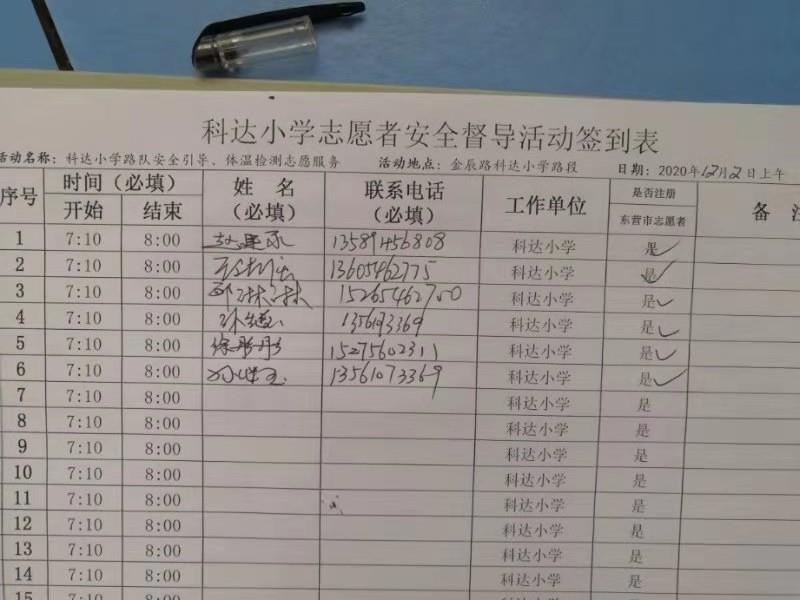 科达小学志愿者安全督导活动签到表
活动名称：科达小学路队安全引导、体温检测志愿服务 活动地点：金辰路科达小学路段 日期：2020年12月2日上午
序号 时间（必填） 姓 名（必填） 联系电话（必填） 工作单位 是否注册东营市志愿者 备
开始 结束
1 7:10 8:00 13589456808 科达小学 是✓
2 7:10 8:00 13605462775 科达小学 是✓
3 7:10 8:00 邓琳琳 15265462700 科达小学 是✓
4 7:10 8:00 科达小学 是✓
5 7:10 8:00 徐彤彤 15275602311 科达小学 是✓
6 7:10 8:00 13561073369 科达小学 是✓
7 7:10 8:00 科达小学 是
8 7:10 8:00 科达小学 是
9 7:10 8:00 科达小学 是
10 7:10 8:00 科达小学 是
11 7:10 8:00 科达小学 是
12 7:10 8:00 科达小学 是
13 7:10 8:00 科达小学 是
14 7:10 8:00 科达小学 是
15